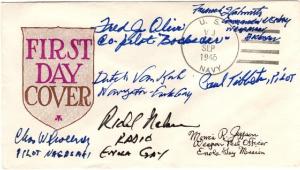 FIRST
DAY
COVER
U. S.
SEP
1945
NAVY
Fred J. Olivi
Co-pilot Bockscar
Dutch Van Kirk
Navigator - Enola Gay
Paul Tibbets, Pilot
Chas W Sweeney
PILOT NAGASAKI
Richard Nelson
RADIO
ENOLA GAY
Morris R. Jeppson
Weapon Test Officer
Enola Gay Mission